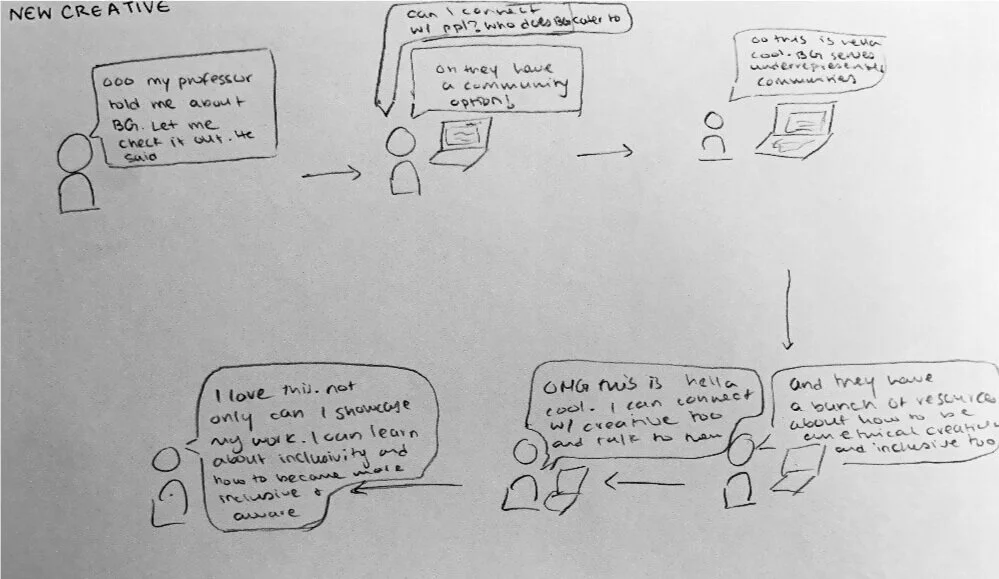 NEW CREATIVE
ooo my professor
told me about
BG. Let me
check it out. He
said
can I connect
w/ ppl? who does BG cater to
oh they have
a community
option!
oo this is hella
cool. BG serves
underrepresented
communities
and they have
a bunch of resources
about how to be
an ethical creative
and inclusive too
OMG this is hella
cool. I can connect
w/ creative too
and talk to
I love this. not
only can I showcase
my work. I can learn
about inclusivity and
how to become more
inclusive &
aware